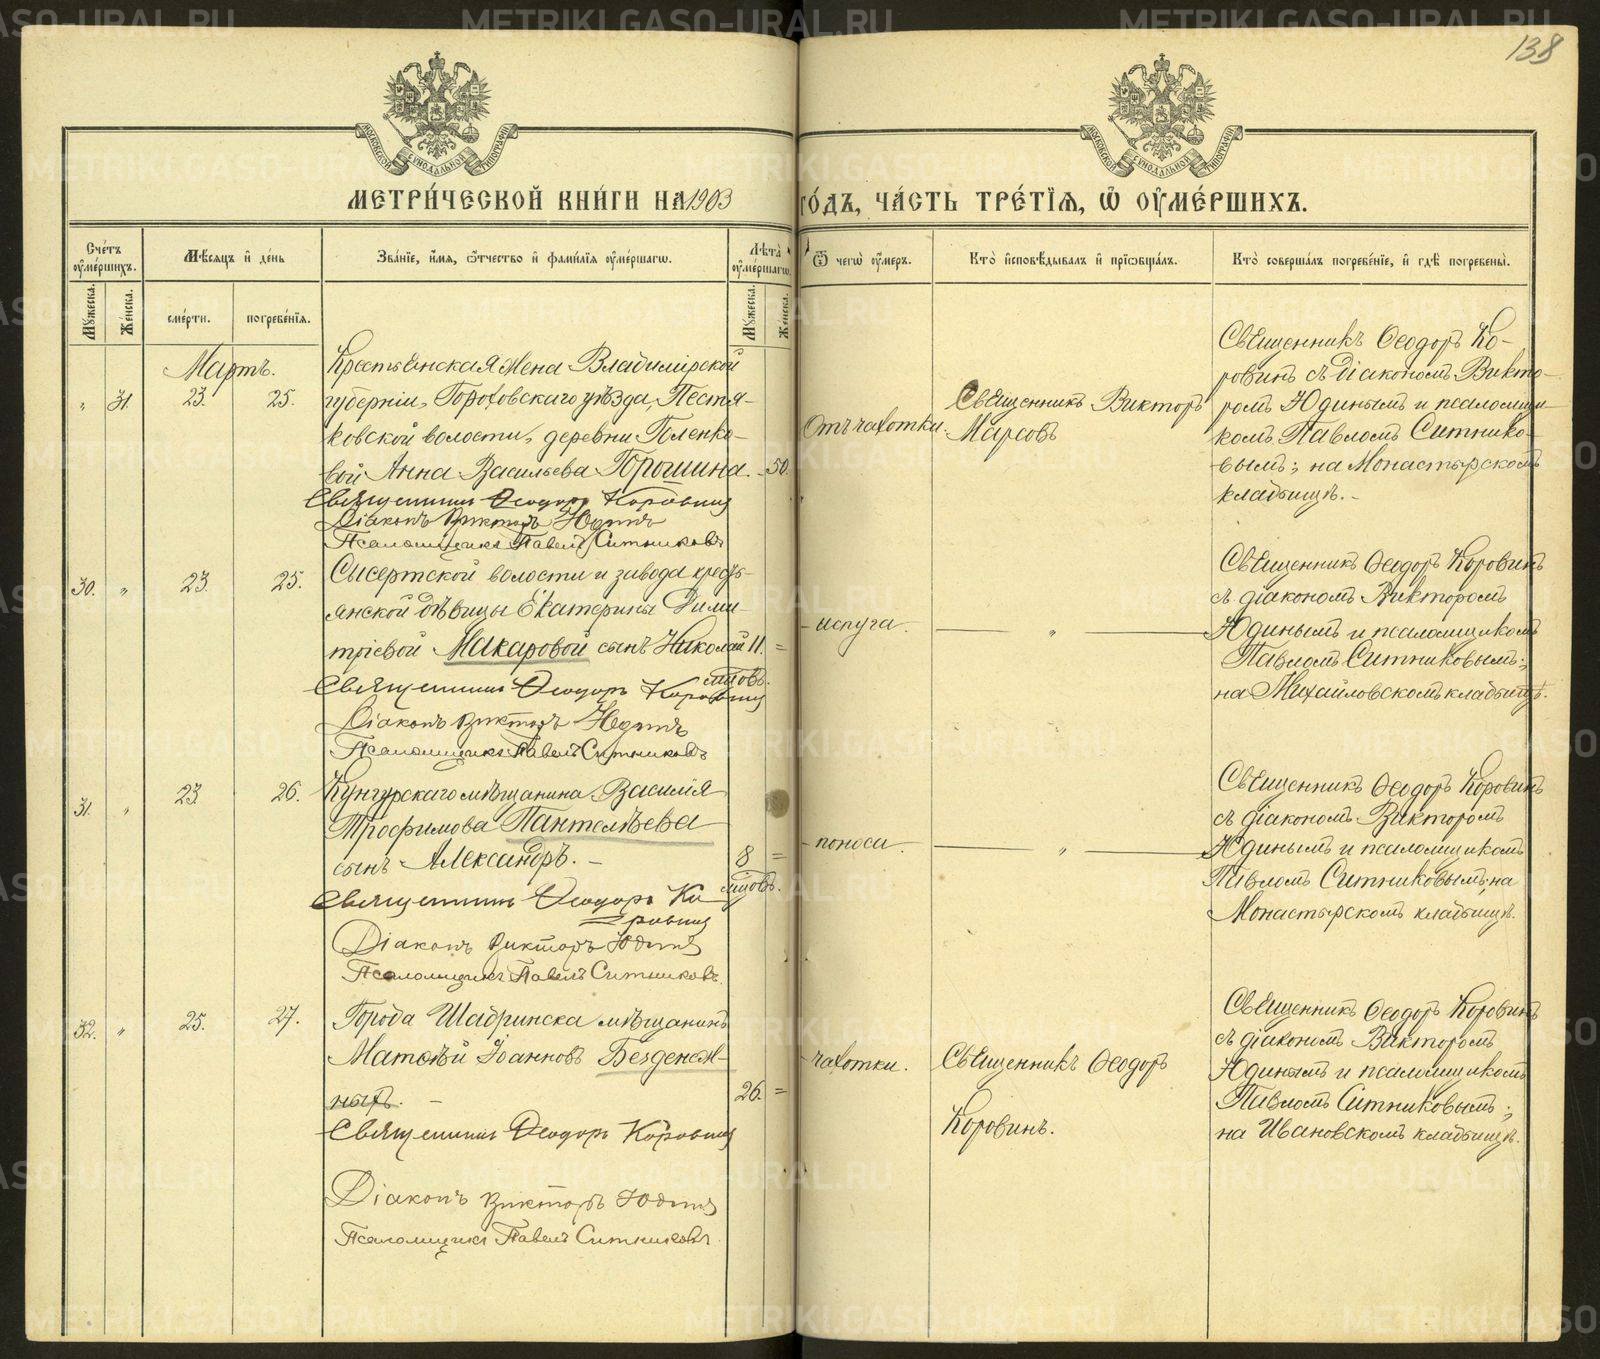 138
МОСКОВСКОЙ СѴНОДАЛЬНОЙ ТИПОГРАФІИ
МОСКОВСКОЙ СѴНОДАЛЬНОЙ ТИПОГРАФІИ
МЕТРИ́ЧЕСКОЙ КНИ́ГИ НА 1903 ГО́ДЪ, ЧА́СТЬ ТРЕ́ТІѦ, Ѡ҆ ОУ҆МЕ́РШИХЪ.
Сче́тъ оу҆ме́ршихъ.
Мѣ́сяцъ и҆ де́нь
Зва́нїе, и҆́мя, ѻ҆́тчество и҆ фами́лїя оу҆ме́ршагѡ.
Лѣ́та оу҆ме́ршагѡ.
Ѿ чегѡ̀ оу҆́меръ.
Кто̀ и҆сповѣ́дывалъ и҆ прїѡбща́лъ.
Кто̀ соверша́лъ погребе́нїе, и҆ гдѣ̀ погребены̀.
Мꙋ́жеска.
Же́нска.
сме́рти.
погребе́нїѧ.
Мꙋ́жеска.
Же́нска.
Мартъ.
" 31. 23. 25.
Крестьянская жена Владимірской
губерніи, Гороховскаго уѣзда, Пестя-
ковской волости, деревни Поленко-
вой Анна Васильева Горошина. - 50.
Священникъ Ѳеодоръ Коровинъ
Діаконъ Викторъ Юдинъ
Псаломщикъ Павелъ Ситниковъ
Отъ чахотки.
Священникъ Викторъ
Марсовъ
Священникъ Ѳеодоръ Ко-
ровинъ съ діакономъ Викто-
ромъ Юдинымъ и псаломщи-
комъ Павломъ Ситнико-
вымъ; на Монастырскомъ
кладбищѣ.-
30. " 23. 25.
Сысертской волости и завода кресть-
янской дѣвицы Екатерины Дими-
тріевой Макаровой сынъ Николай 11. =
мѣсяцовъ.
Священникъ Ѳеодоръ Коровинъ
Діаконъ Викторъ Юдинъ
Псаломщикъ Павелъ Ситниковъ
- испуга.
— " —
Священникъ Ѳеодоръ Коровинъ
съ діакономъ Викторомъ
Юдинымъ и псаломщикомъ
Павломъ Ситниковымъ;
на Михайловскомъ кладбищѣ.
31. " 23. 26.
Кунгурскаго мѣщанина Василія
Трофимова Пантелѣева
сынъ Александръ. - 8 =
мцовъ.
Священникъ Ѳеодоръ Ко
ровинъ
Діаконъ Викторъ Юдинъ
Псаломщикъ Павелъ Ситниковъ.
- поноса.
— " —
Священникъ Ѳеодоръ Коровинъ
съ діакономъ Викторомъ
Юдинымъ и псаломщикомъ
Павломъ Ситниковымъ; на
Монастырскомъ кладбищѣ.
32. " 25. 27.
Города Шадринска мѣщанинъ
Матѳѣй Іоанновъ Безденеж-
ныхъ. - 26. =
Священникъ Ѳеодоръ Коровинъ
Діаконъ Викторъ Юдинъ
Псаломщикъ Павелъ Ситниковъ.
- чахотки.
Священникъ Ѳеодоръ
Коровинъ.
Священникъ Ѳеодоръ Коровинъ
съ діакономъ Викторомъ
Юдинымъ и псаломщикомъ
Павломъ Ситниковымъ;
на Ивановскомъ кладбищѣ.
METRIKI.GASO-URAL.RU